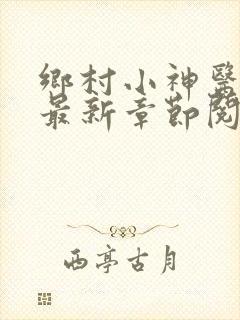 鄉村小神醫
最新章節閱
西亭古月